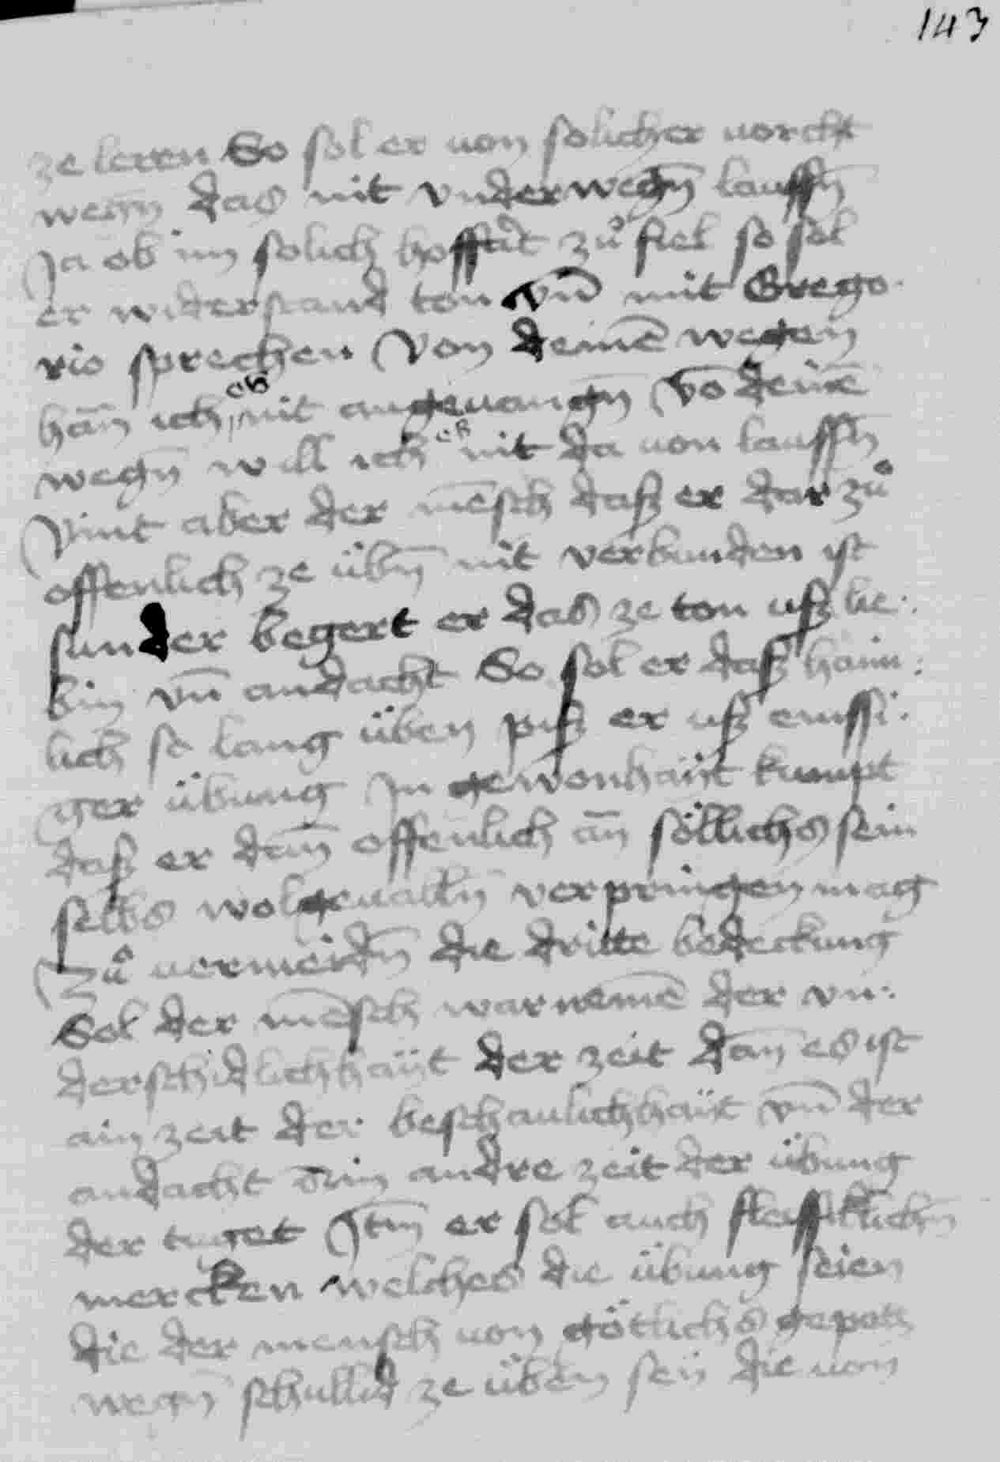 143
ze leren So sol er von solicher vorcht
wegn̄ das nit vnderwegn̄ lauſſn̄
Ja ob im solich hoffart zů fiel so sol
er widerstand ton vn̄ mit Grego-
rio sprechen Von deinē wegen
han̄ ich es nit angeuangn̄ vō deinē
wegn̄ will ich es nit da von lauſſn̄
Vint aber der mēsch daß er dar zů
offenlich ze übn̄ nit verbunden ist
sunder begert er das ze ton uß lie-
bin vn̄ andacht So sol er daß haim-
lich so lang üben piß er uß emssi-
ger übung In gewonhäit kumpt
daß er dan̄ offenlich an̄ söllichs sein
selbs wolgeualln̄ verpringen mag
Zů vermeidn̄ die dritte bedeckung
Sol der mēsch warnemē der vn-
derschidlichhäit der zeit dan̄ es ist
ain zeit der beschaulichhäit vn̄ der
andacht ain andre zeit der übung
der tuget Itm̄ er sol auch fleissiklichn̄
mercken welches die übung seien
die der mensch von götlichs gepott
wegn̄ schuldig ze üben sein die von